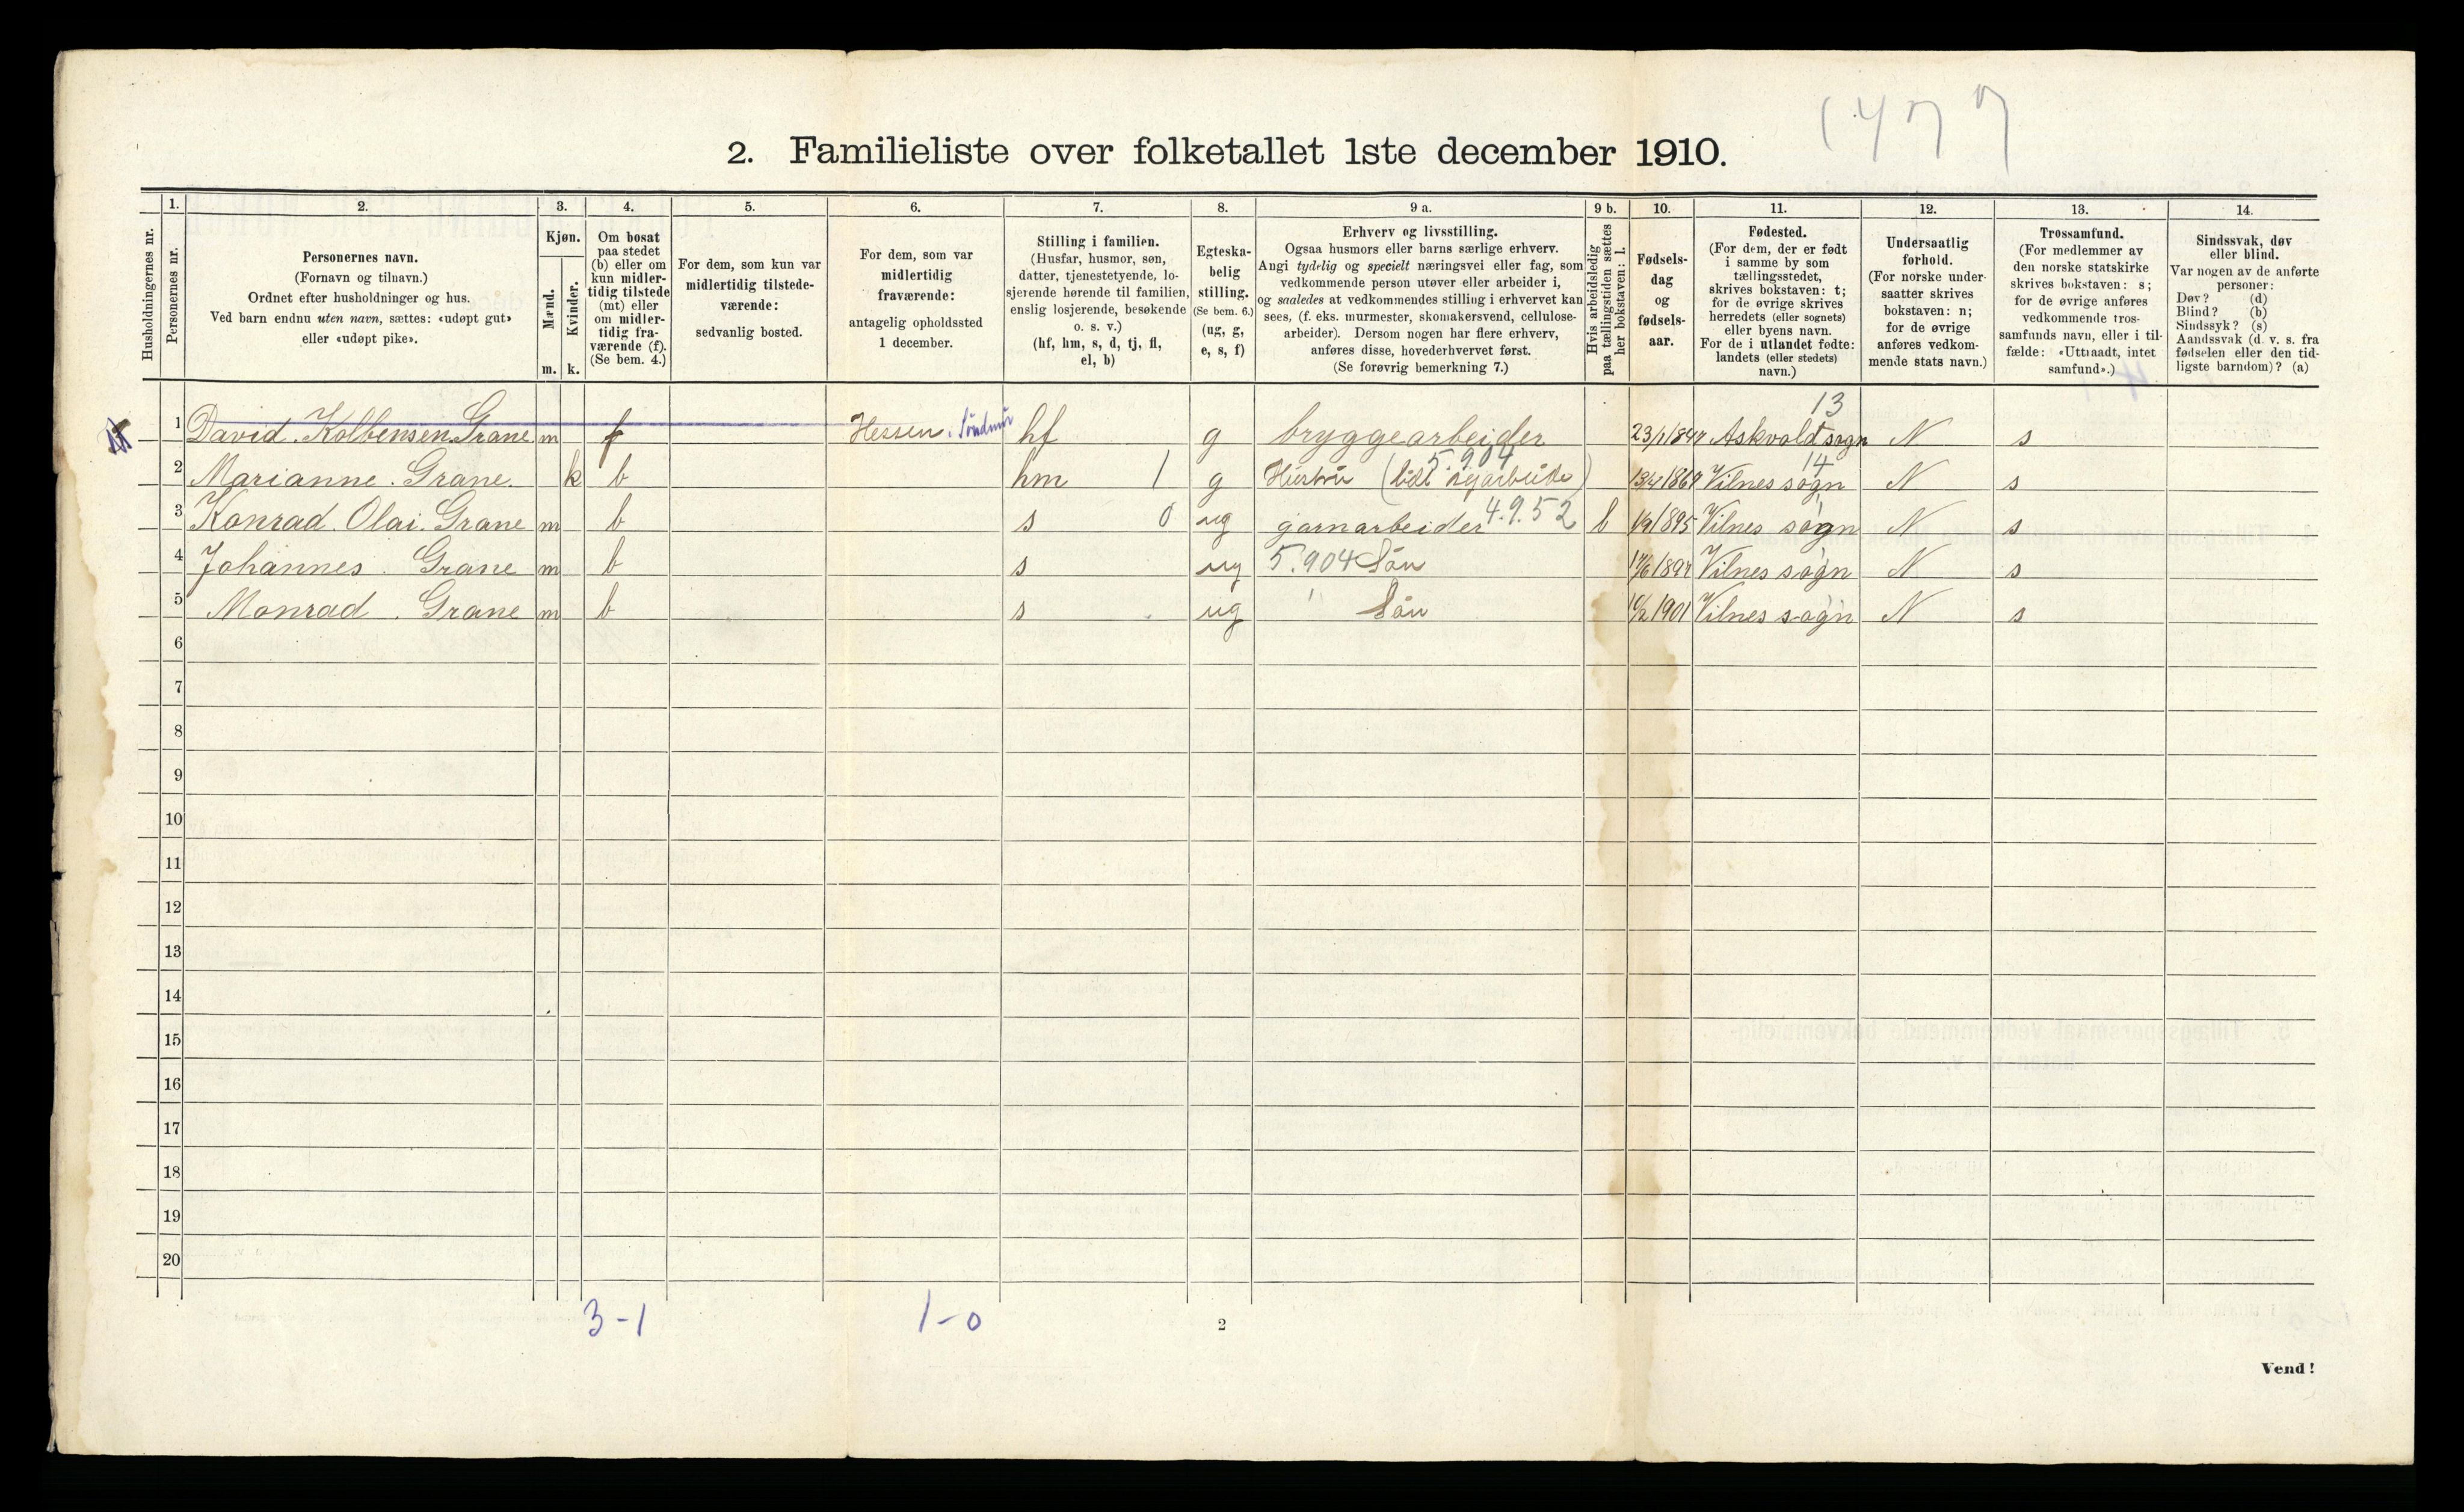 1477
2. Familieliste over folketallet 1ste december 1910.
1. 2. 3. 4. 5. 6. 7. 8. 9 a. 9 b. 10. 11. 12. 13. 14.
Husholdningernes nr.
Personernes nr.
Personernes navn.
(Fornavn og tilnavn.)
Ordnet efter husholdninger og hus.
Ved barn endnu uten navn, sættes: «udøpt gut»
eller «udøpt pike».
Kjøn.
Mænd.
Kvinder.
m. k.
Om bosat
paa stedet
(b) eller om
kun midler-
tidig tilstede
(mt) eller
om midler-
tidig fra-
værende (f).
(Se bem. 4.)
For dem, som kun var
midlertidig tilstede-
værende:
sedvanlig bosted.
For dem, som var
midlertidig
fraværende:
antagelig opholdssted
1 december.
Stilling i familien.
(Husfar, husmor, søn,
datter, tjenestetyende, lo-
sjerende hørende til familien,
enslig losjerende, besøkende
o. s. v.)
(hf, hm, s, d, tj, fl,
el, b)
Egteska-
belig
stilling.
(Se bem. 6.)
(ug, g,
e, s, f)
Erhverv og livsstilling.
Ogsaa husmors eller barns særlige erhverv.
Angi tydelig og specielt næringsvei eller fag, som
vedkommende person utøver eller arbeider i,
og saaledes at vedkommendes stilling i erhvervet kan
sees, (f. eks. murmester, skomakersvend, cellulose-
arbeider). Dersom nogen har flere erhverv,
anføres disse, hovederhvervet først.
(Se forøvrig bemerkning 7.)
Hvis arbeidsledig
paa tællingstiden sættes
her bokstaven: l.
Fødsels-
dag
og
fødsels-
aar.
Fødested.
(For dem, der er født
i samme by som
tællingsstedet,
skrives bokstaven: t;
for de øvrige skrives
herredets (eller sognets)
eller byens navn.
For de i utlandet fødte:
landets (eller stedets)
navn.)
Undersaatlig
forhold.
(For norske under-
saatter skrives
bokstaven: n;
for de øvrige
anføres vedkom-
mende stats navn.)
Trossamfund.
(For medlemmer av
den norske statskirke
skrives bokstaven: s;
for de øvrige anføres
vedkommende tros-
samfunds navn, eller i til-
fælde: «Uttraadt, intet
samfund».)
Sindssvak, døv
eller blind.
Var nogen av de anførte
personer:
Døv? (d)
Blind? (b)
Sindssyk? (s)
Aandssvak (d. v. s. fra
fødselen eller den tid-
ligste barndom)? (a)
13
1 David. Kolbensen. Grane m f Hessen. Söndmör hf g bryggearbeider Askvold sogn N s
5.904 14
2 Marianne. Grane k b hm 1 g Hustru Vilnes sogn N s
3 Konrad. Olai. Grane m b s 0 ug garnarbeider 4.9.52 l 1/9 1895 Vilnes sogn N s
4 Johannes. Grane m b s ug 5.904 Sön Vilnes sogn N s
5 Monrad. Grane m b s ug Sön 1901 Vilnes sogn N s
6
7
8
9
10
11
12
13
14
15
16
17
18
19
20
3-1 1-0 2
Vend!